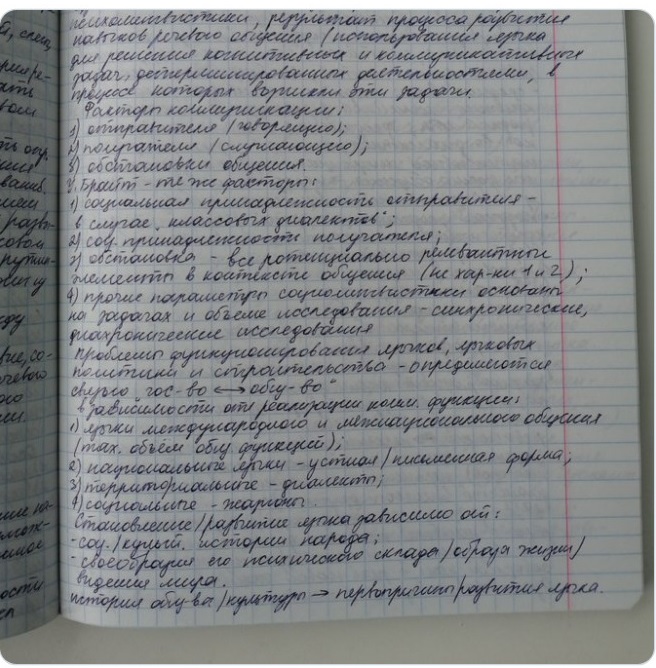 психолингвистики, результат процесса развития
навыков речевого общения / использования языка
для решения когнитивных и коммуникативных
задач, детерминированных деятельностями, в
процессе которых возникли эти задачи.
Факторы коммуникации:
1) отправителя (говорящего);
2) получателя (слушающего);
3) обстановки общения.
У. Брайт - те же факторы:
1) социальная принадлежность отправителя -
в случае "классовых диалектов";
2) соц. принадлежности получателя;
3) обстановка - все потенциально релевантные
элементы в контексте общения (не хар-ки 1 и 2);
4) прочие параметры социолингвистики основаны
на задачах и объеме исследования - синхронические,
диахронические исследования
Проблемы функционирования языков, языковых
политики и строительства - определяются
связью "гос-во ↔ общ-во"
в зависимости от реализации комм. функции:
1) языки международного и межнационального общения
(max. объём общ. функций);
2) национальные языки - устная / письменная форма;
3) территориальные - диалекты;
4) социальные - жаргоны.
Становление / развитие языка зависимо от:
- соц. / культ. истории народа;
- своеобразия его психического склада / образа жизни /
видения мира.
история общ-ва / культуры → первопричины / развития языка.